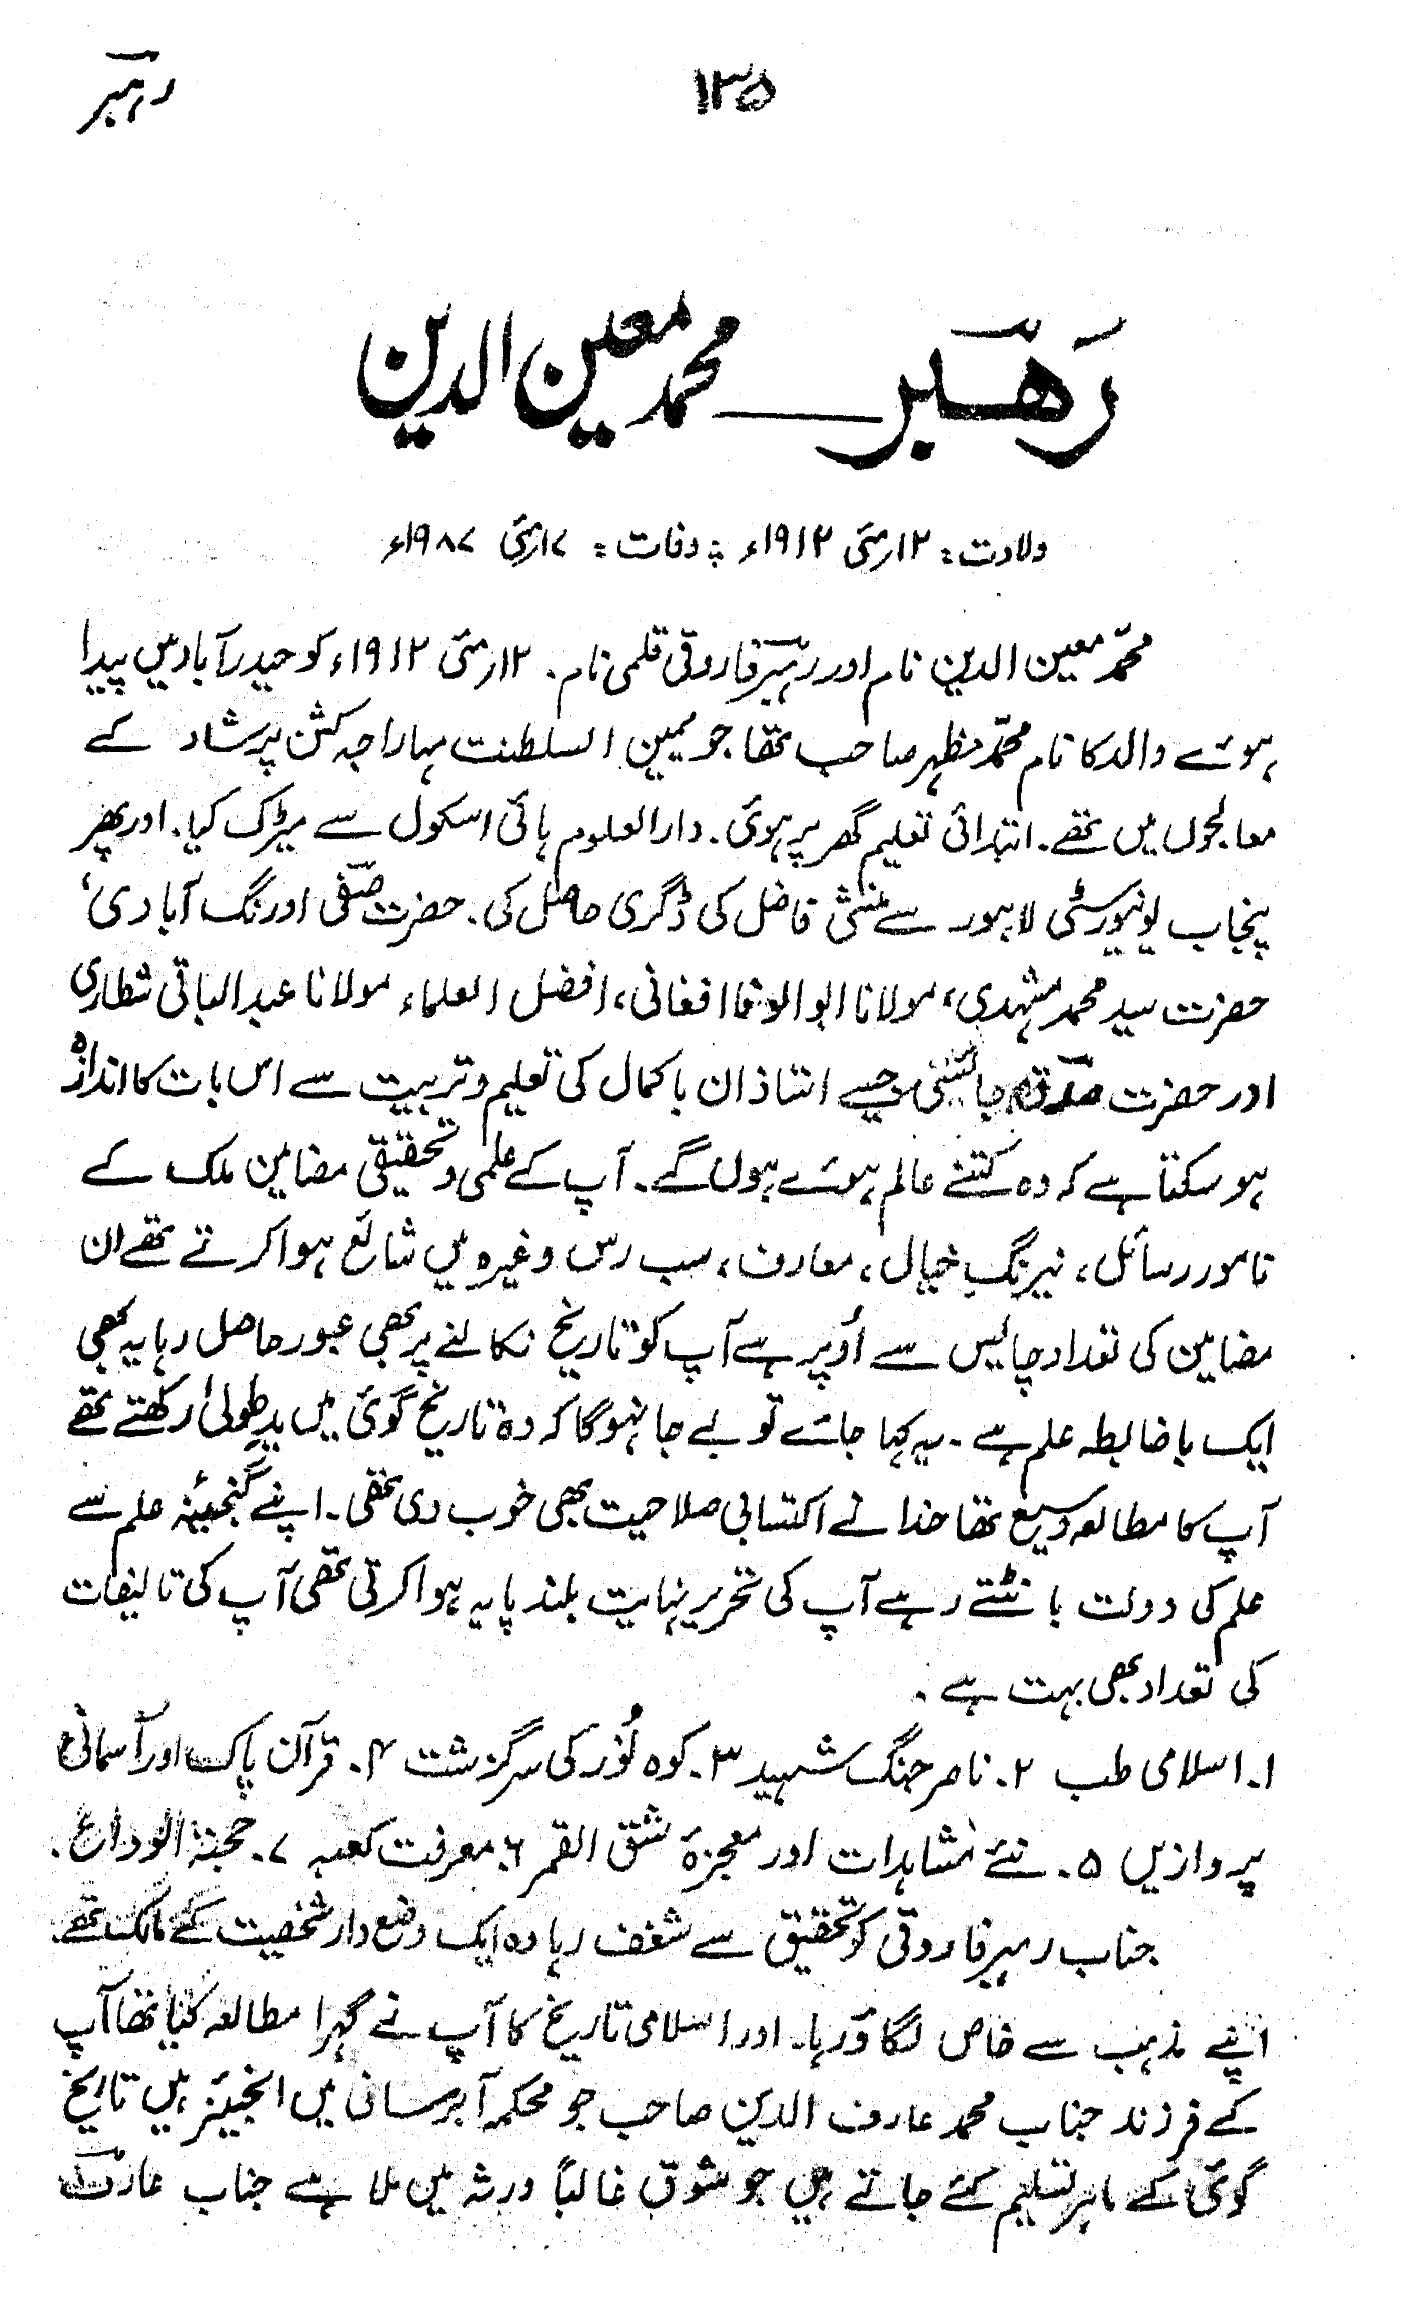 رہبر
۱۳۵
رَھبَر ــــ محمد معین الدین
ولادت: ۱۲ار مئی ۱۹۱۲ء ؛ وفات: ۱۷ار مئی ۱۹۸۷ء
محمّد معین الدین نام اور رہبر فاروقی قلمی نام۔ ۱۲ار مئی ۱۹۱۲ء کو حیدرآباد میں پیدا
ہوئے والد کا نام محمّد مظہر صاحب تھا جو یمین السلطنت مہاراجہ کشن پرشاد کے
معالجوں میں تھے۔ ابتدائی تعلیم گھر پر ہوئی۔ دارالعلوم ہائی اسکول سے میٹرک کیا۔ اور پھر
پنجاب یونیورسٹی لاہور سے منشی فاضل کی ڈگری حاصل کی۔ حضرت صفی اورنگ آبادی،
حضرت سید محمد مشہدی، مولانا ابوالوفا افغانی، افضل العلماء مولانا عبدالباقی شطاری
اور حضرت صدق جائسی جیسے استاذان باکمال کی تعلیم و تربیت سے اس بات کا اندازہ
ہو سکتا ہے کہ وہ کتنے عالم ہوئے ہوں گے۔ آپ کے علمی و تحقیقی مضامین ملک کے
نامور رسائل، نیرنگِ خیال، معارف، سب رس وغیرہ میں شائع ہوا کرتے تھے ان
مضامین کی تعداد چالیس سے اُوپر ہے آپ کو تاریخ نکالنے پر بھی عبور حاصل رہا یہ بھی
ایک باضابطہ علم ہے۔ یہ کہا جائے تو بے جا نہ ہوگا کہ وہ تاریخ گوئی میں یدِطولیٰ رکھتے تھے
آپ کا مطالعہ وسیع تھا خدا نے اکتسابی صلاحیت بھی خوب دی تھی۔ اپنے گنجینۂ علم سے
علم کی دولت بانٹتے رہے آپ کی تحریر نہایت بلند پایہ ہوا کرتی تھی آپ کی تالیفات
کی تعداد بھی بہت ہے۔
۱۔ اسلامی طب ۲۔ ناصر جنگ شہید ۳۔ کوہ نُور کی سرگزشت ۴۔ قرآن پاک اور آسمانی
پروازیں ۵۔ نئے مشاہدات اور معجزۂ شق القمر ۶۔ معرفت کعبہ ۷۔ حجۃ الوداع۔
جناب رہبر فاروقی کو تحقیق سے شغف رہا وہ ایک وضع دار شخصیت کے مالک تھے۔
اپنے مذہب سے خاص لگاؤ رہا۔ اور اسلامی تاریخ کا آپ نے گہرا مطالعہ کیا تھا آپ
کے فرزند جناب محمد عارف الدین صاحب جو محکمہ آبرسانی میں انجینئر ہیں تاریخ
گوئی کے ماہر تسلیم کئے جاتے ہیں جو شوق غالباً ورثہ میں ملا ہے جناب عارف